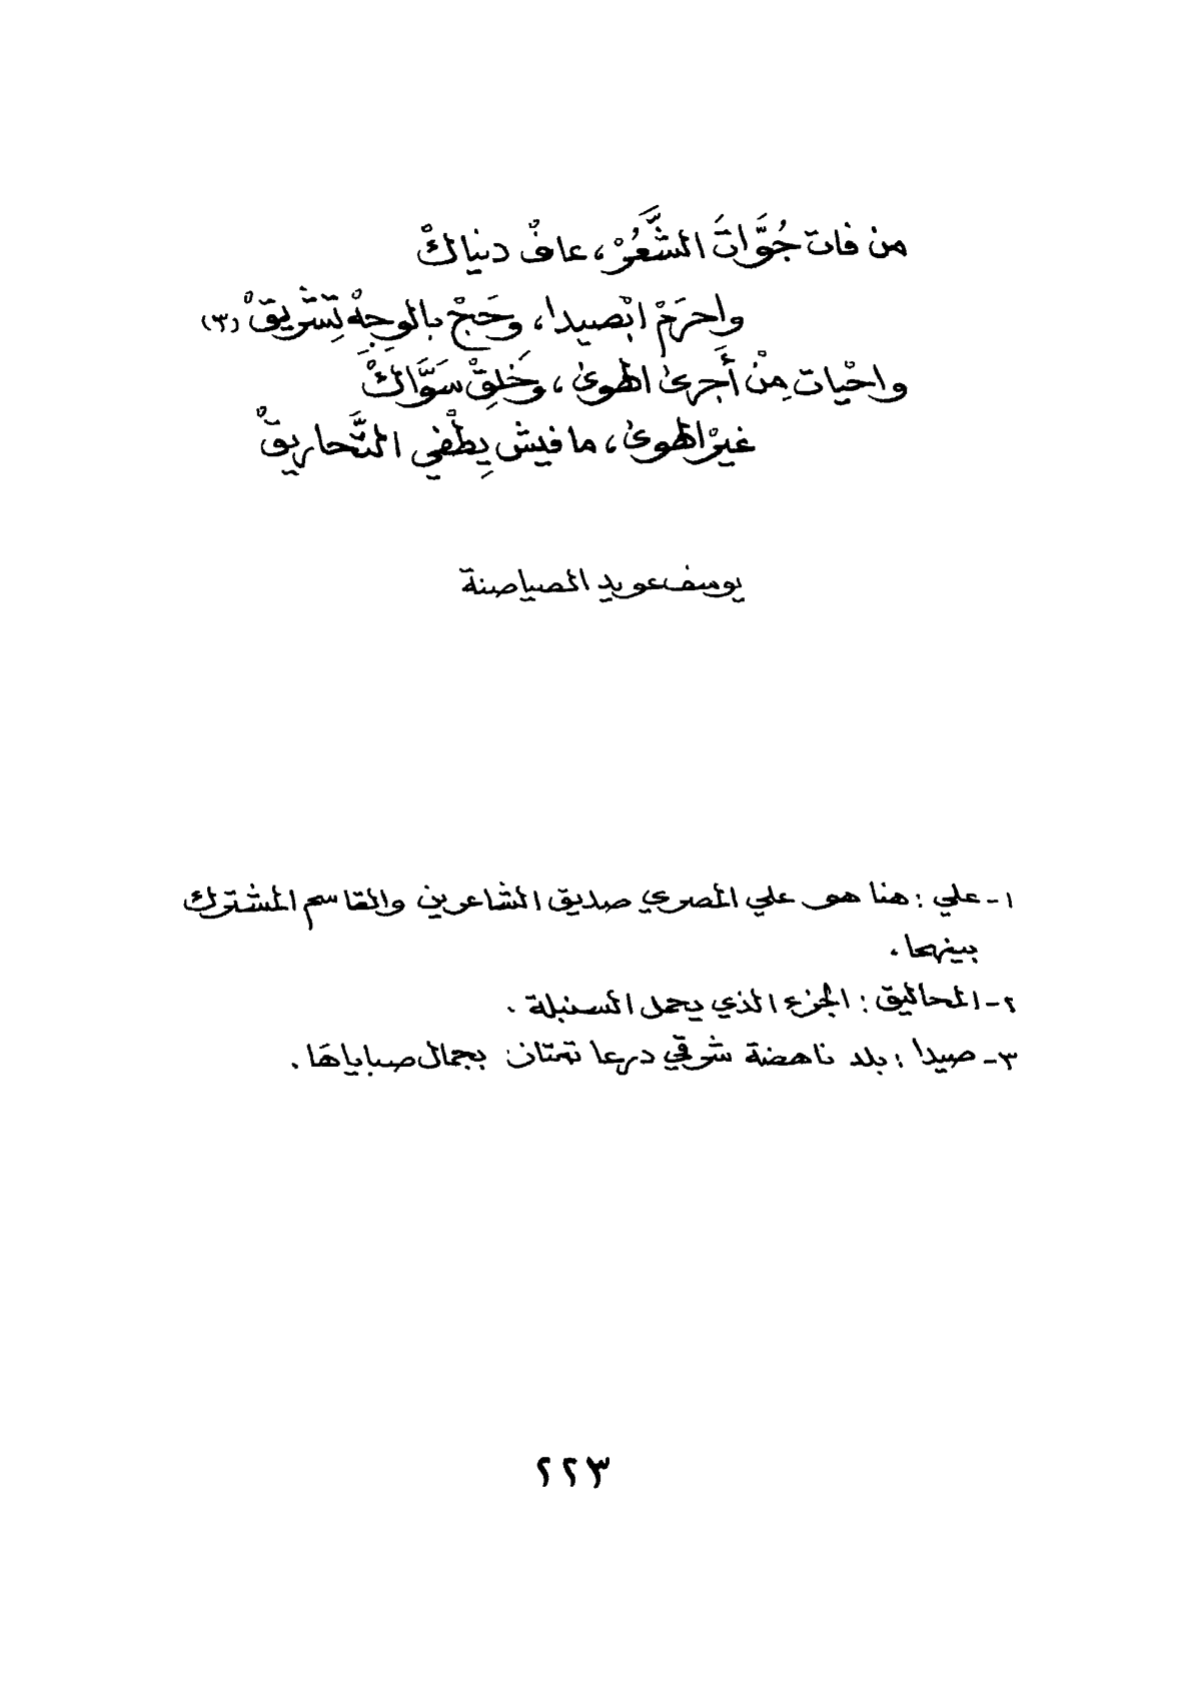 من فات جُوَّاتَ الشَّعُرْ، عافْ دنياكْ
واحرَمْ ابْصيدا، وحَجْ بالوِجِهْ تِشَريقْ (٣)
واحْيات مِنْ أَجرىٰ الهوىٰ، وخَلِقْ سَوَّاكْ
غيرْ الهوىٰ، ما فيش يِطْفي التَّحاريقْ
يوسف عويد الصياصنة
١- علي : هنا هو علي المصري صديق الشاعرين والقاسم المشترك
بينهما .
٢- المحاليق : الجزء الذي يحمل السنبلة .
٣- صيدا : بلد ناهضة شرقي درعا تمتاز بجمال صباياها .
٢٢٣